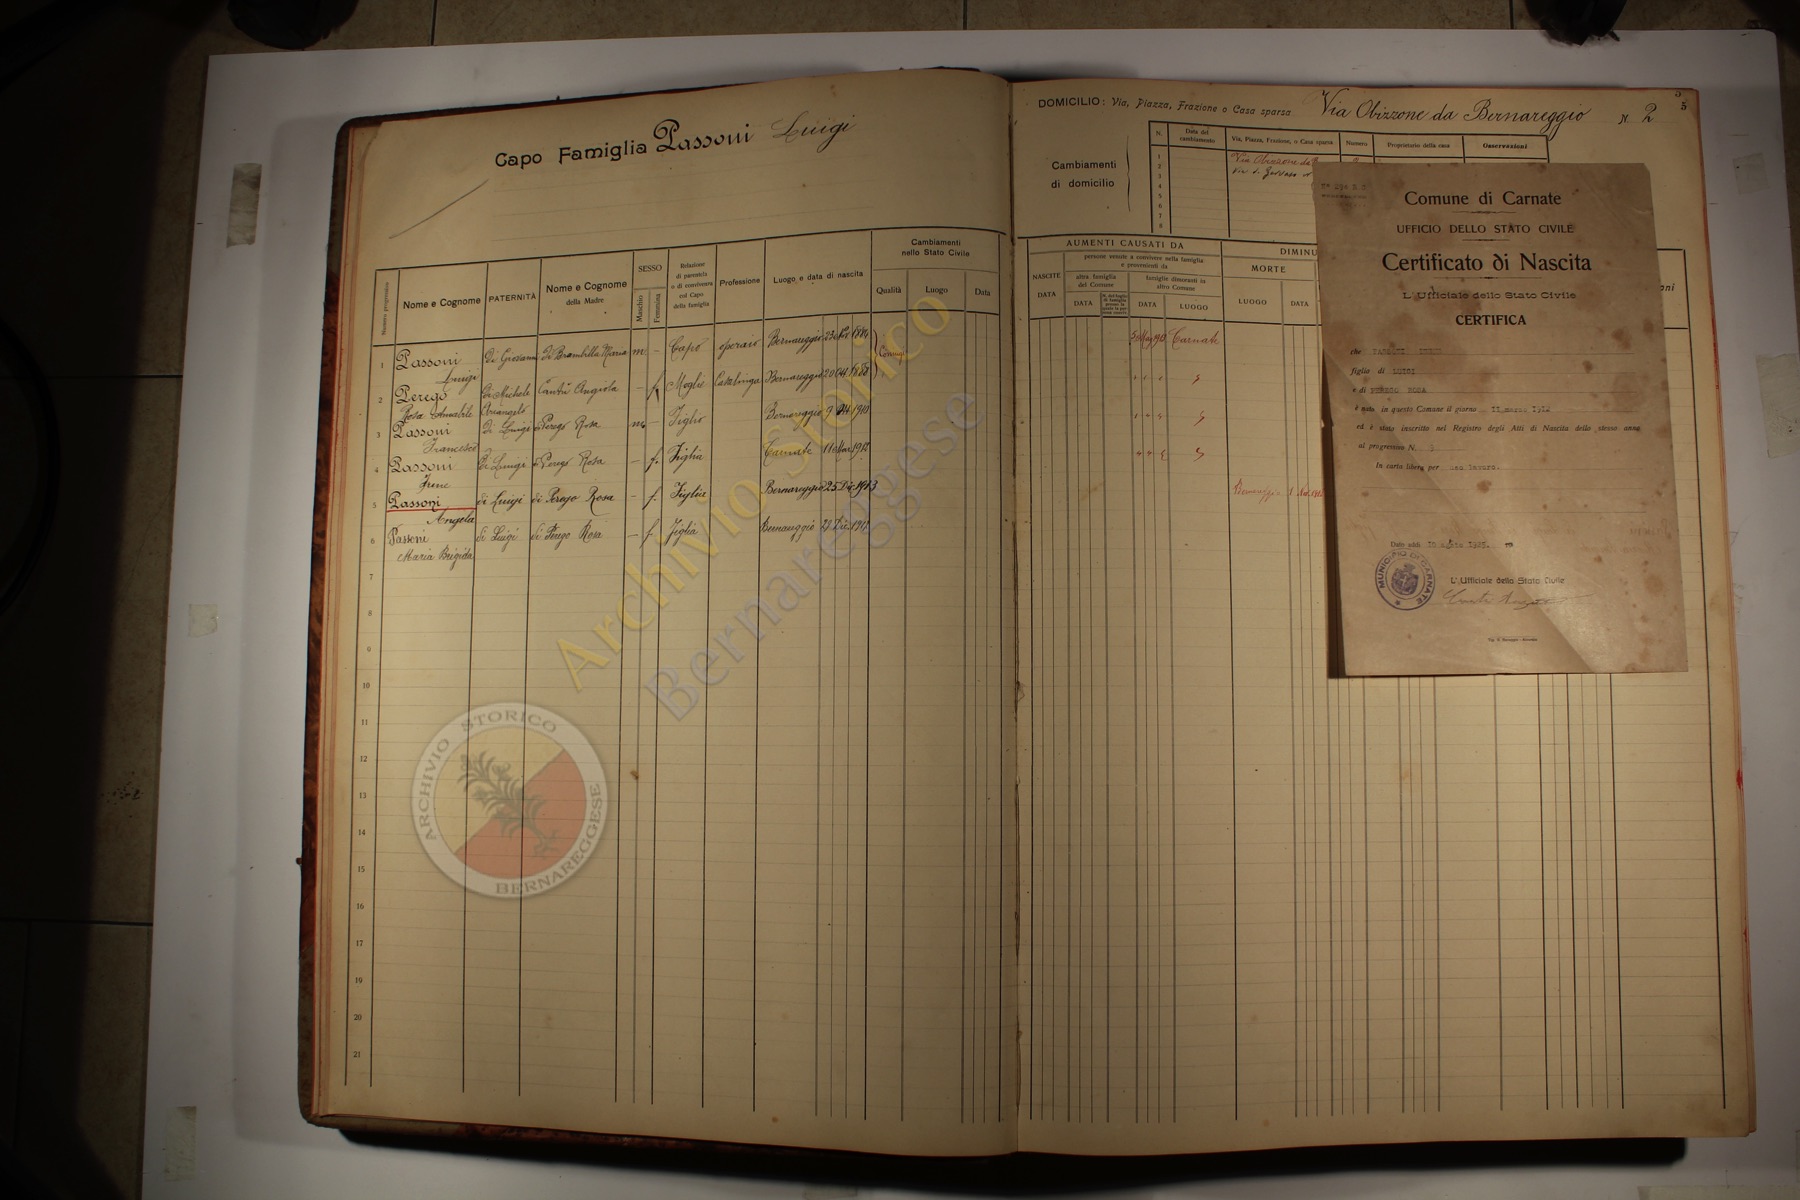 Capo Famiglia Passoni Luigi
Numero progressivo
Nome e Cognome
PATERNITÀ
Nome e Cognome
della Madre
SESSO
Maschio
Femmina
Relazione
di parentela
o di convivenza
col Capo
della famiglia
Professione
Luogo e data di nascita
Cambiamenti
nello Stato Civile
Qualità
Luogo
Data
1 Passoni Luigi di Giovanni di Brambilla Maria m - Capo operaio Bernareggio 1884 Coniugi
2 Perego Rosa Amabile di Michele Arcangelo Cantù Angiola - f Moglie Casalinga Bernareggio 20 1888
3 Passoni Francesco di Luigi Perego Rosa m - Figlio Bernareggio 9
4 Passoni Irene di Luigi Perego Rosa - f. Figlia Carnate 11 Mar 1912
5 Passoni Angela di Luigi di Perego Rosa - f. Figlia Bernareggio 25 Dic 1913
6 Passoni Maria Brigida di Luigi di Perego Rosa - f Figlia Bernareggio Dic
7
8
9
10
11
12
13
14
15
16
17
18
19
20
21
Archivio Storico
Bernareggese
ARCHIVIO STORICO
BERNAREGGESE
5
DOMICILIO: Via, Piazza, Frazione o Casa sparsa Via Obizzone da Bernareggio N. 2
Cambiamenti
di domicilio
N.
Data del
cambiamento
Via, Piazza, Frazione, o Casa sparsa
Numero
Proprietario della casa
Osservazioni
1
2
3
4
5
6
7
8
Via Obizzone da
Via S. Gervaso
AUMENTI CAUSATI DA
NASCITE
DATA
persone venute a convivere nella famiglia
e provenienti da
altra famiglia
del Comune
famiglie dimoranti in
altro Comune
DATA
DATA
LUOGO
DIMINU
MORTE
LUOGO
DATA
Carnate
Bernareggio 1
Comune di Carnate
UFFICIO DELLO STATO CIVILE
Certificato di Nascita
L'Ufficiale dello Stato Civile
CERTIFICA
che PASSONI
figlio di LUIGI
e di PEREGO ROSA
è nato in questo Comune il giorno 11 marzo 1912
ed è stato inscritto nel Registro degli Atti di Nascita dello stesso anno
al progressivo N.
In carta libera per uso lavoro.
Dato addì 10 agosto 1925.
MUNICIPIO DI CARNATE
L'Ufficiale dello Stato Civile